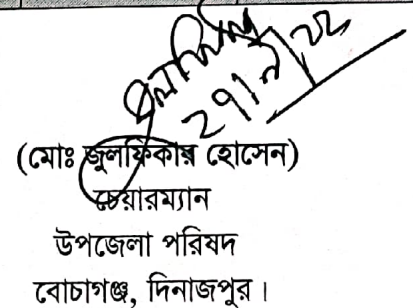 ২৭/৯/২২
(মোঃ জুলফিকার হোসেন)
চেয়ারম্যান
উপজেলা পরিষদ
বোচাগঞ্জ, দিনাজপুর।